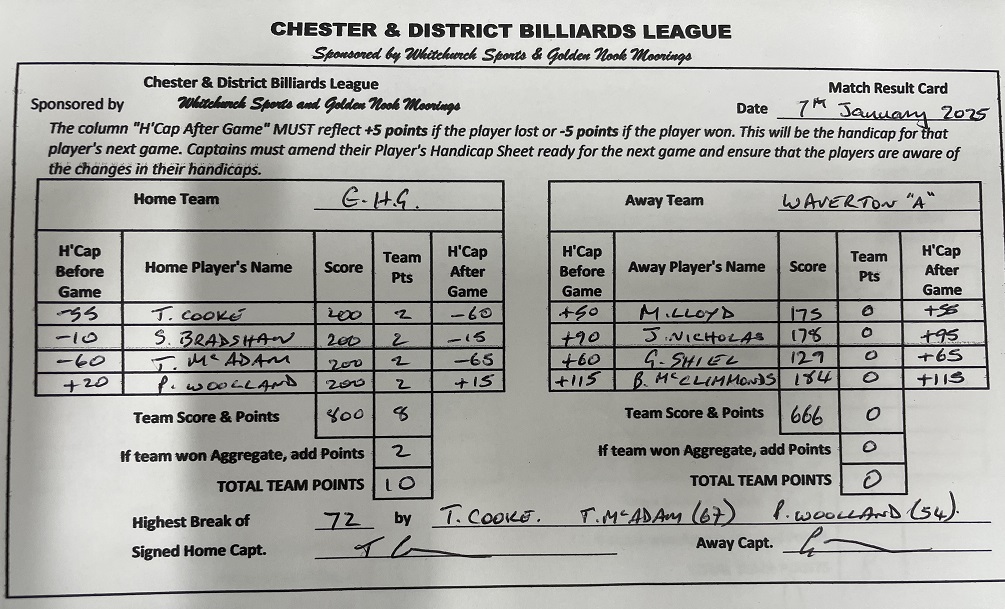 CHESTER & DISTRICT BILLIARDS LEAGUE
Sponsored by Whitchurch Sports & Golden Nook Moorings
Chester & District Billiards League
Match Result Card
Sponsored by Whitchurch Sports and Golden Nook Moorings
Date 7TH January 2025
The column "H'Cap After Game" MUST reflect +5 points if the player lost or -5 points if the player won. This will be the handicap for that
player's next game. Captains must amend their Player's Handicap Sheet ready for the next game and ensure that the players are aware of
the changes in their handicaps.
Home Team E.H.G.
H'Cap Before Game Home Player's Name Score Team Pts H'Cap After Game
-55 T. COOKE 200 2 -60
-10 S. BRADSHAW 200 2 -15
-60 T. McADAM 200 2 -65
+20 P. WOOLLAND 200 2 +15
Team Score & Points 800 8
If team won Aggregate, add Points 2
TOTAL TEAM POINTS 10
Away Team WAVERTON "A"
H'Cap Before Game Away Player's Name Score Team Pts H'Cap After Game
+50 M. LLOYD 175 0 +55
+90 J. NICHOLAS 178 0 +95
+60 G. SHIEL 129 0 +65
+115 B. McCLIMMONDS 184 0 +115
Team Score & Points 666 0
If team won Aggregate, add Points 0
TOTAL TEAM POINTS 0
Highest Break of 72 by T. COOKE. T. McADAM (67) P. WOOLLAND (54).
Signed Home Capt.
Away Capt.